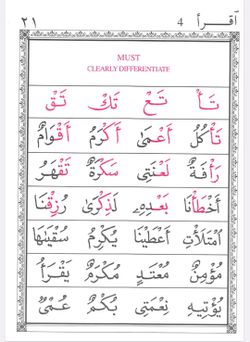 ٢١ 4 إقرأ
MUST
CLEARLY DIFFERENTIATE
تَأْ تَعْ تَكْ تَقْ
تَأْكُلُ أَعْمَى أَكْرَمُ أَقْوَامٌ
رَأْفَةٌ لَعْنَتِي سَكْرَةٌ تَقْهَرْ
أَخْطَأْنَا بَعْدِهِ لَذِكْرَى رُزِقْنَا
اَمْتَلَأْتِ أَعْطَيْنَا يُكْرِمُ سُقْيَٰهَا
مُؤْمِنٌ مُعْتَدٍ مُكْرَمٌ يَقْرَأُ
يُؤْتِيهِ نِعْمَتِي بُكْمٌ عُمْىٌ